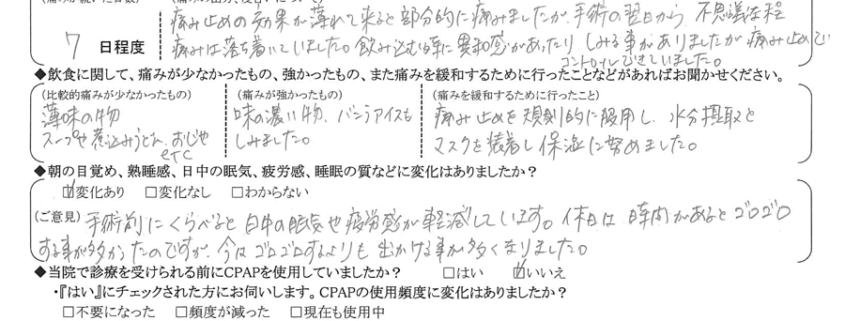 痛み止めの効果が薄れて来ると部分的に痛みましたが、手術の翌日から 不思議な程
7 日程度 痛みは落ち着いていました。飲み込む時に異和感があったり しみる事がありましたが 痛み止めで
コントロールできていました。
◆飲食に関して、痛みが少なかったもの、強かったもの、また痛みを緩和するために行ったことなどがあればお聞かせください。
(比較的痛みが少なかったもの) (痛みが強かったもの) (痛みを緩和するために行ったこと)
薄味の物 味の濃い物、バニラアイスも 痛み止めを規則的に服用し、水分摂取と
スープや煮込みうどん、おじや しみました。 マスクを装着し保湿に努めました。
etc
◆朝の目覚め、熟睡感、日中の眠気、疲労感、睡眠の質などに変化はありましたか？
☑変化あり □変化なし □わからない
(ご意見) 手術前にくらべると日中の眠気や疲労感が軽減しています。休日は 時間があるとゴロゴロ
する事が多かったのですが、今はゴロゴロするよりも 出かける事が多くなりました。
◆当院で診療を受けられる前にCPAPを使用していましたか？ □はい ☑いいえ
・『はい』にチェックされた方にお伺いします。CPAPの使用頻度に変化はありましたか？
□不要になった □頻度が減った □現在も使用中